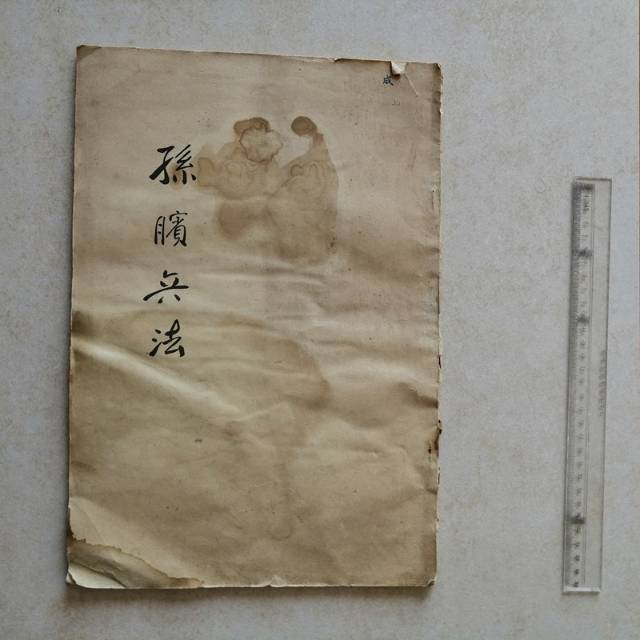 孫臏兵法